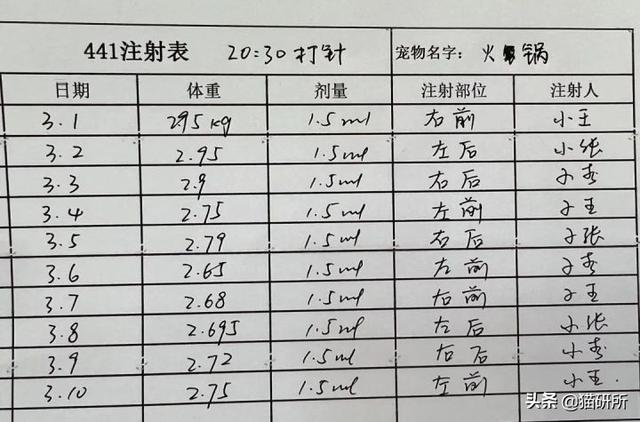 441注射表 20:30打针 宠物名字: 火锅
日期 体重 剂量 注射部位 注射人
3.1 2.95kg 1.5ml 右前 小王
3.2 2.95 1.5ml 左后 小张
3.3 2.9 1.5ml 右后 小李
3.4 2.75 1.5ml 左前 小王
3.5 2.79 1.5ml 右后 小张
3.6 2.65 1.5ml 左前 小李
3.7 2.68 1.5ml 右前 小王
3.8 2.695 1.5ml 左后 小张
3.9 2.72 1.5ml 右后 小李
3.10 2.75 1.5ml 左前 小王
头条 @猫研所